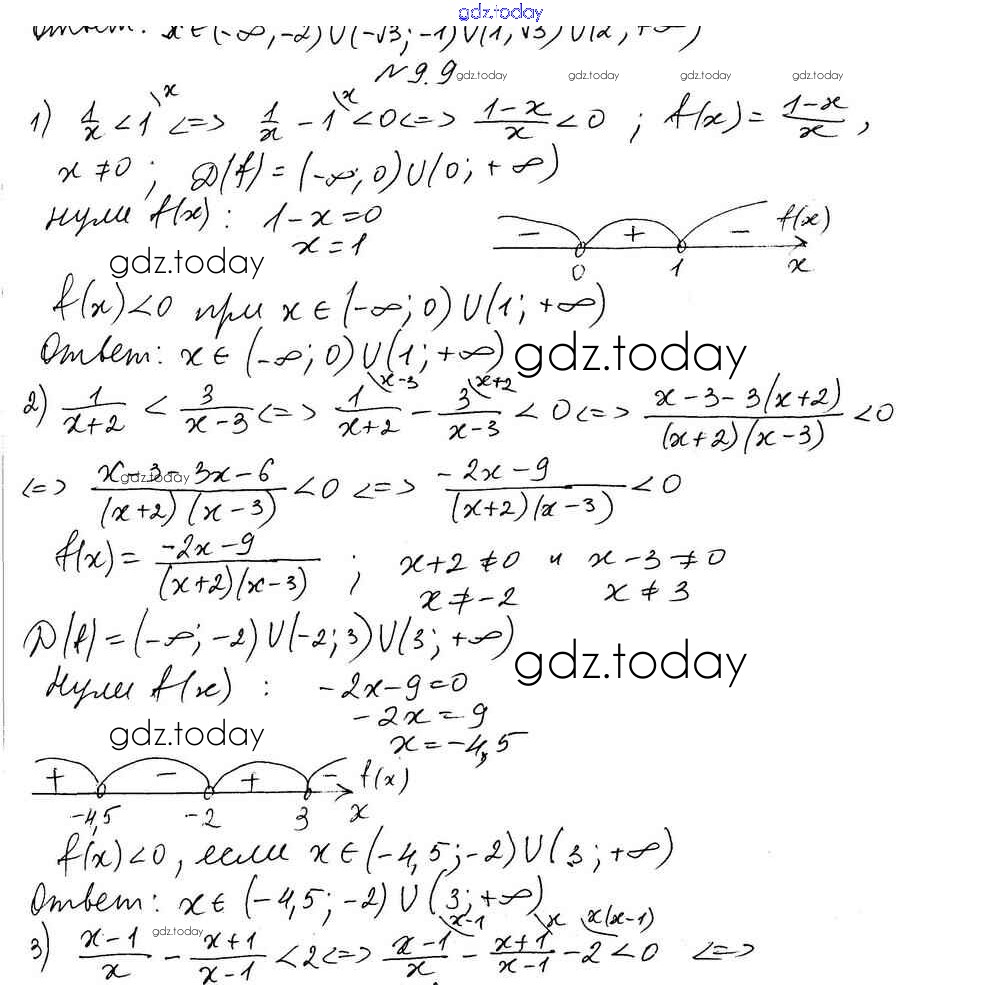 gdz.today
Ответ: x∈(-∞,-2)∪(-√3;-1)∪(1,√3)∪(2,+∞)
№9.9 gdz.today gdz.today gdz.today gdz.today
1) 1/x < 1^{\x} <=> 1/x - 1^{\x} < 0 <=> (1-x)/x < 0 ; f(x) = (1-x)/x ,
x ≠ 0 ; D(f) = (-∞; 0)∪(0; +∞)
нули f(x): 1-x=0
x=1
- + - f(x)
0 1 x
gdz.today
f(x)<0 при x∈(-∞; 0)∪(1; +∞)
Ответ: x∈(-∞; 0)∪(1; +∞) gdz.today
2) 1/(x+2) < 3/(x-3) <=> 1^{\x-3}/(x+2) - 3^{\x+2}/(x-3) < 0 <=> (x-3-3(x+2))/((x+2)(x-3)) < 0
<=> (x-3-3x-6)/((x+2)(x-3)) < 0 <=> (-2x-9)/((x+2)(x-3)) < 0
gdz.today
f(x) = (-2x-9)/((x+2)(x-3)) ; x+2≠0 и x-3≠0
x≠-2 x≠3
D(f) = (-∞; -2)∪(-2; 3)∪(3; +∞) gdz.today
Нули f(x): -2x-9=0
-2x=9
gdz.today x=-4,5
+ - + - f(x)
-4,5 -2 3 x
f(x)<0, если x∈(-4,5;-2)∪(3;+∞)
Ответ: x∈(-4,5; -2)∪(3;+∞)
3) (x-1)/x - (x+1)/(x-1) < 2 <=> (x-1)^{\x-1}/x - (x+1)^{\x}/(x-1) - 2^{\x(x-1)} < 0 <=>
gdz.today